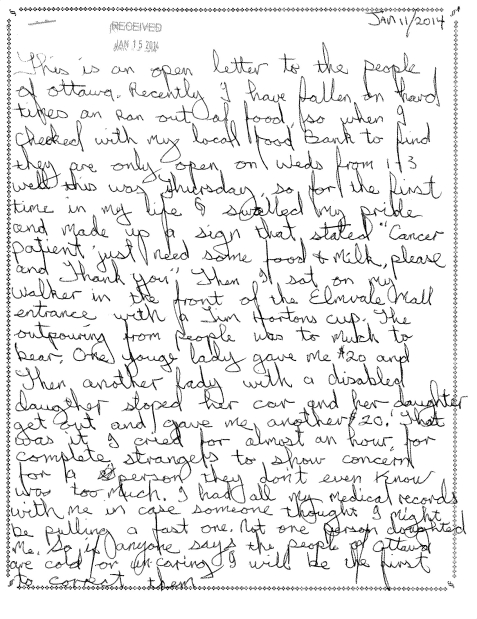 Jan 11/2014
RECEIVED
JAN 15 2014
This is an open letter to the people
of ottawa. Recently I have fallen on hard
times an ran out of food so when I
checked with my local food bank to find
they are only open on Weds from 1-3
well this was thursday, so for the first
time in my life I swolled my pride
and made up a sign that stated "Cancer
patient just need some food & Milk, please
and Thank you" Then I sat on my
walker in the front of the Elmvale Mall
entrance with a Tim Hortons cup. The
outpouring from people was to much to
bear. One younge lady gave me $20 and
Then another lady with a disabled
daugther stoped her car and her daughter
get out and gave me another $20. That
was it I cried for almost an hour, for
complete strangets to show concern
for a person they don't even know
was too much. I had all my medical records
with me in case someone thought I might
be pulling a fast one. Not one person doughted
me. So if anyone says the people of Ottawa
are cold or uncaring I will be the first
to correct them